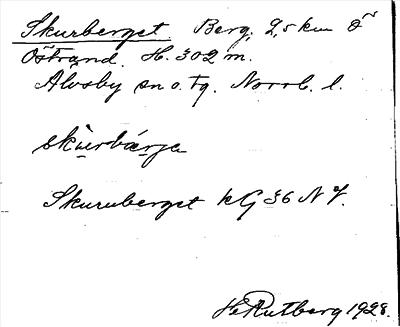 Skurberget Berg, 2,5 km Ö
Östrand. H. 302 m.
Älvsby sn o. tg. Norrb. l.
skùrbárje
Skuruberget kG 36 NV.
H Rutberg 1928.